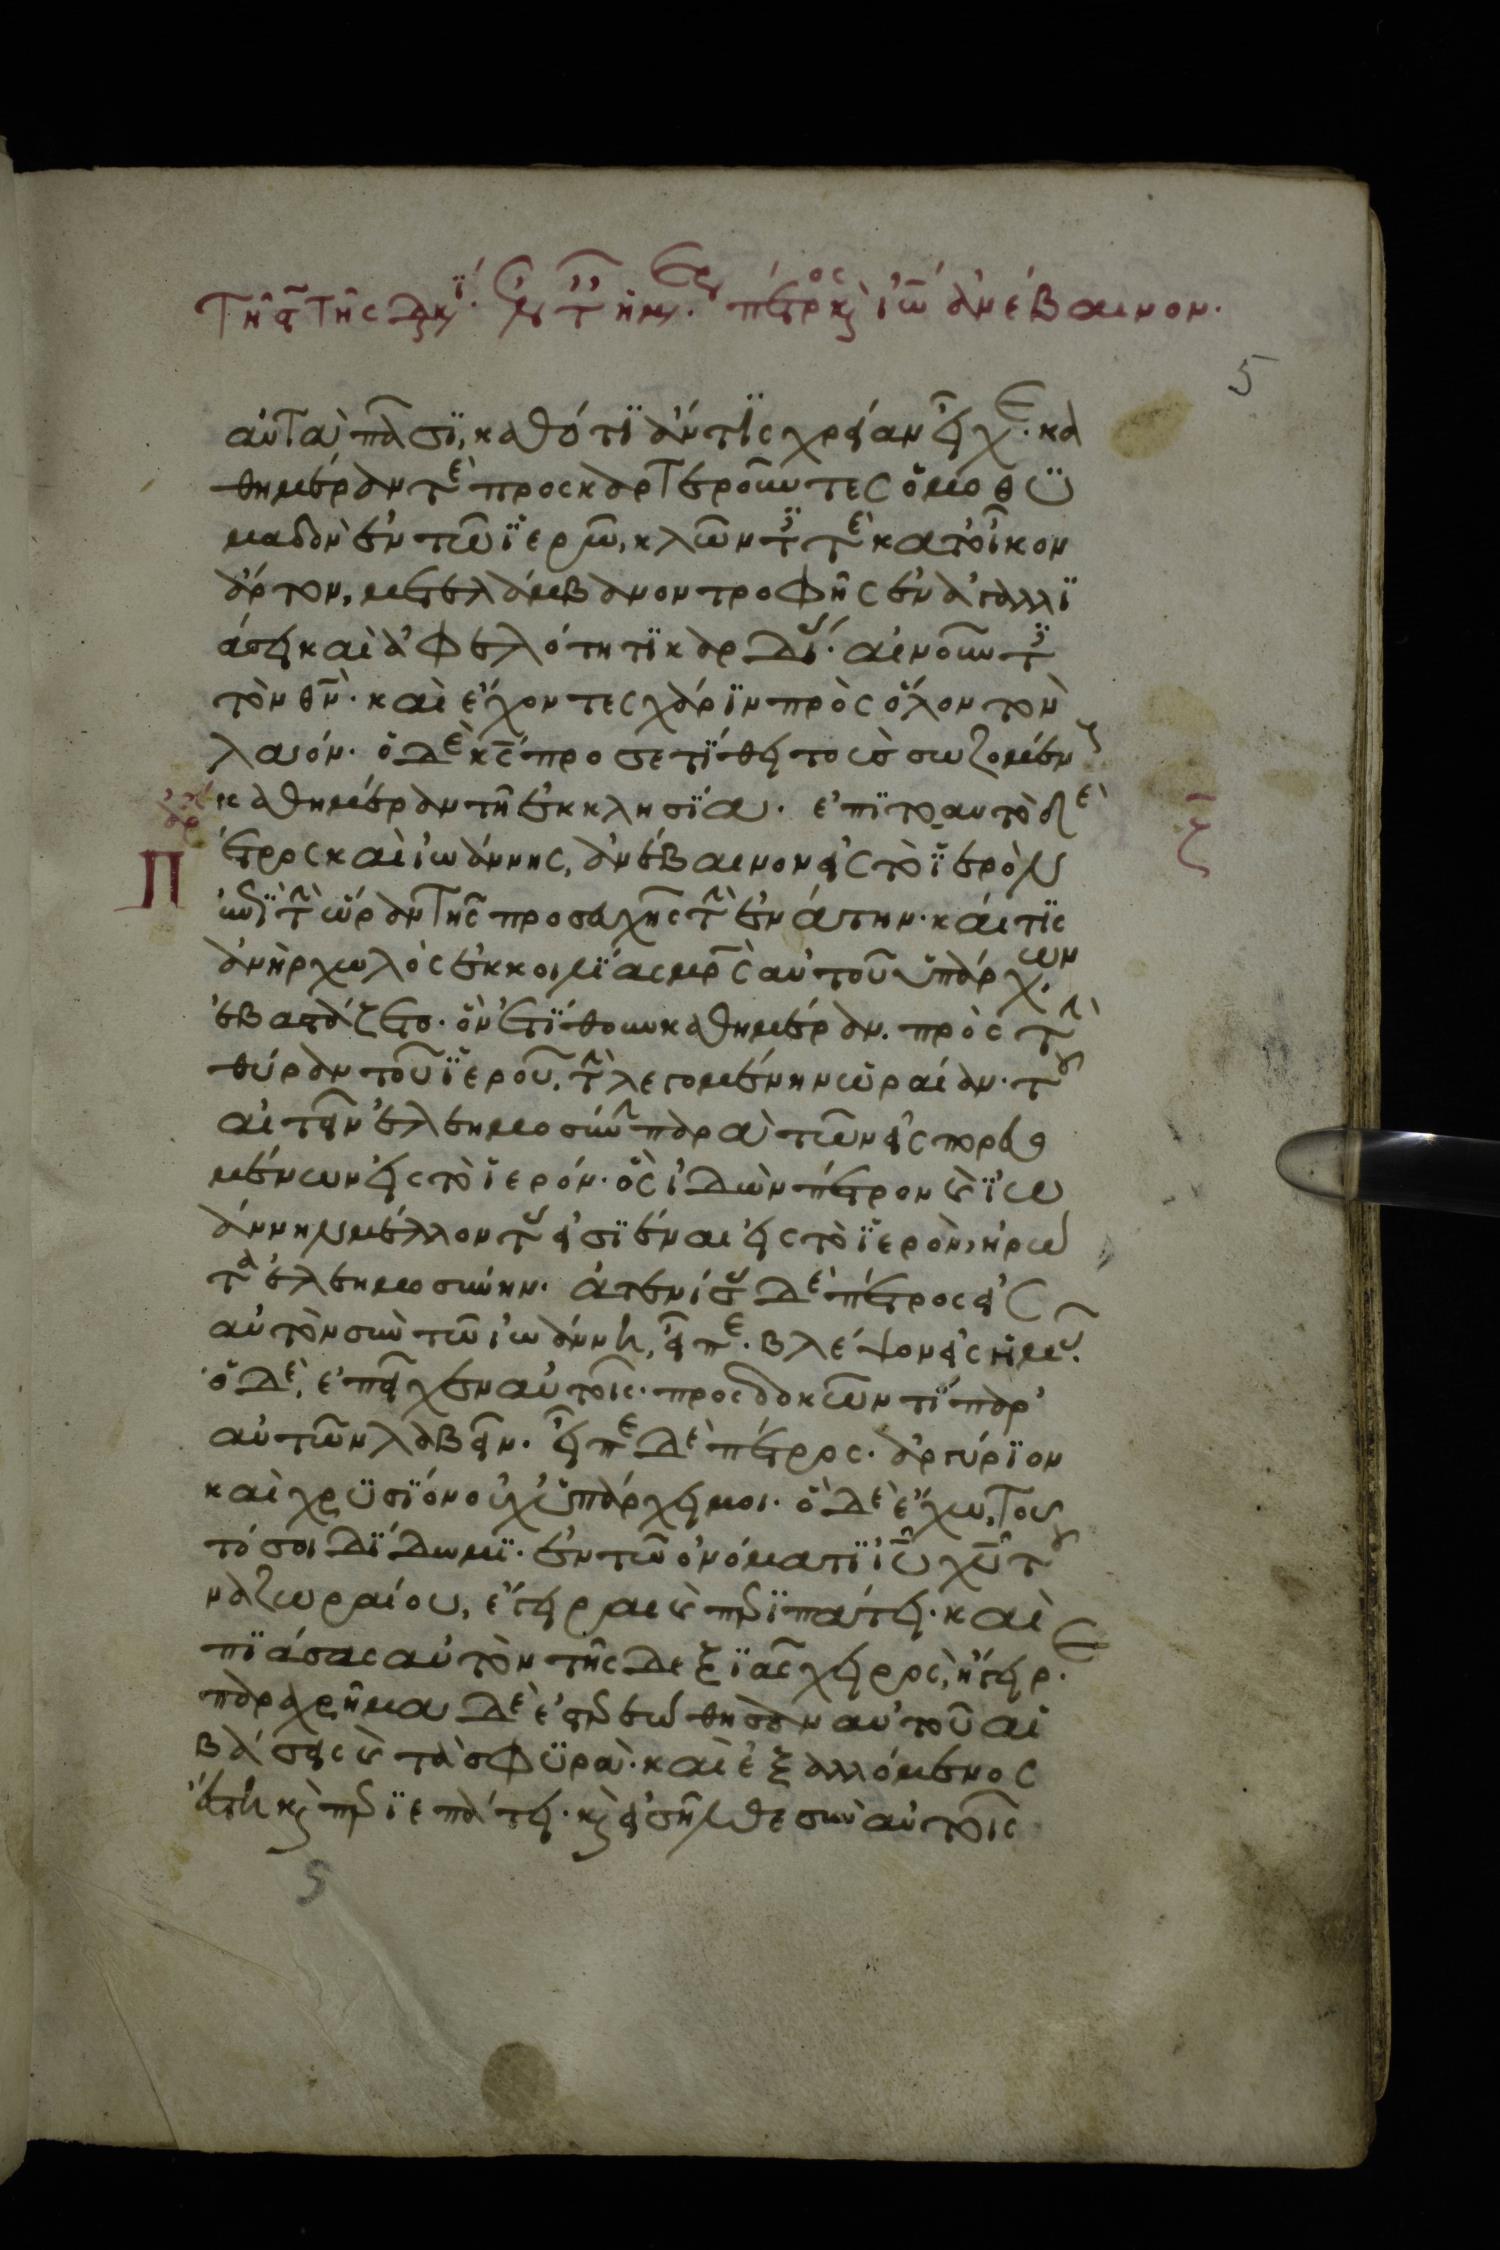 Τῆ δ τῆς διακ. ἐν ταῖς ἡμ. Πέτρος κ ἰω ἀνέβαινον.
5
αὐτὰ πᾶσϊ, καθότϊ ἄν τϊς χρείαν εἶχε. κα
θημέραν τὲ προσκαρτεροῦντες ὁμοθϋ
μαδὸν ἐν τῶ ϊερῶ, κλῶντϊς τὲ κατοῖκον
ἄρτον, μετελάμβανον τροφῆς ἐν ἀγαλλϊ
άσει καὶ ἀφελότητϊ καρδίας. αἰνοῦντες
τὸν θν. καὶ ἔχοντες χάρϊν πρὸς ὅλον τὸν
λαόν. ὁ δὲ κς προσετϊθει τοὺς σωζομένους
καθημέραν τῆ ἐκκλησϊα. ἐπϊτοαυτὸ δὲ
ζ
Πέτρος καὶ ἰωάννης, ἀνέβαινον εἰς τὸ ϊερὸν
ἐπϊ τὴν ὥραν τῆς προσευχῆς τὴν ἐνάτην. καί τϊς
ἀνὴρ χωλὸς ἐκ κοιλϊας μρς αὐτοῦ ὑπάρχων.
ἐβαστάζετο. ὃν ἐτϊθουν καθημέραν. πρὸς τὴν
θύραν τοῦ ϊεροῦ, τὴν λεγομένην ὡραίαν. τοῦ
αἰτεῖν ἐλεημοσύνην παρὰ τῶν εἰσπορευο
μένων εἰς τὸ ϊερόν. ὃς ἰδὼν πέτρον κ ϊω
άννην μέλλοντας εἰσϊέναι εἰς τὸ ϊερὸν, ἠρώ
τα ἐλεημοσύνην. ἀτενίσας δὲ πέτρος εἰς
αὐτὸν σὺν τῶ ἰωάννη, εἶπε. βλέψον εἰς ἡμᾶς.
ὁ δὲ, ἐπεῖχεν αὐτοῖς. προσδοκῶν τϊ παρ'
αὐτῶν λαβεῖν. εἶπε δὲ πέτρος. ἀργύρϊον
καὶ χρϋσϊον οὐχ' ὑπάρχει μοι. ὃ δὲ ἔχω, τοῦ
τό σοι δϊδωμϊ. ἐν τῶ ὀνόματϊ ἰυ χυ τοῦ
ναζωραίου, ἔγειραι κ περϊπάτει. καὶ
πϊάσας αὐτὸν τῆς δεξϊᾶς χειρὸς, ἤγειρε.
παραχρῆμα δὲ ἐστερεώθησαν αὐτοῦ αἱ
βάσεις κ τὰ σφϋρά. καὶ ἐξαλλόμενος
ἔστη κ περϊεπάτει. κ εἰσῆλθε σὺν αὐτοῖς
5